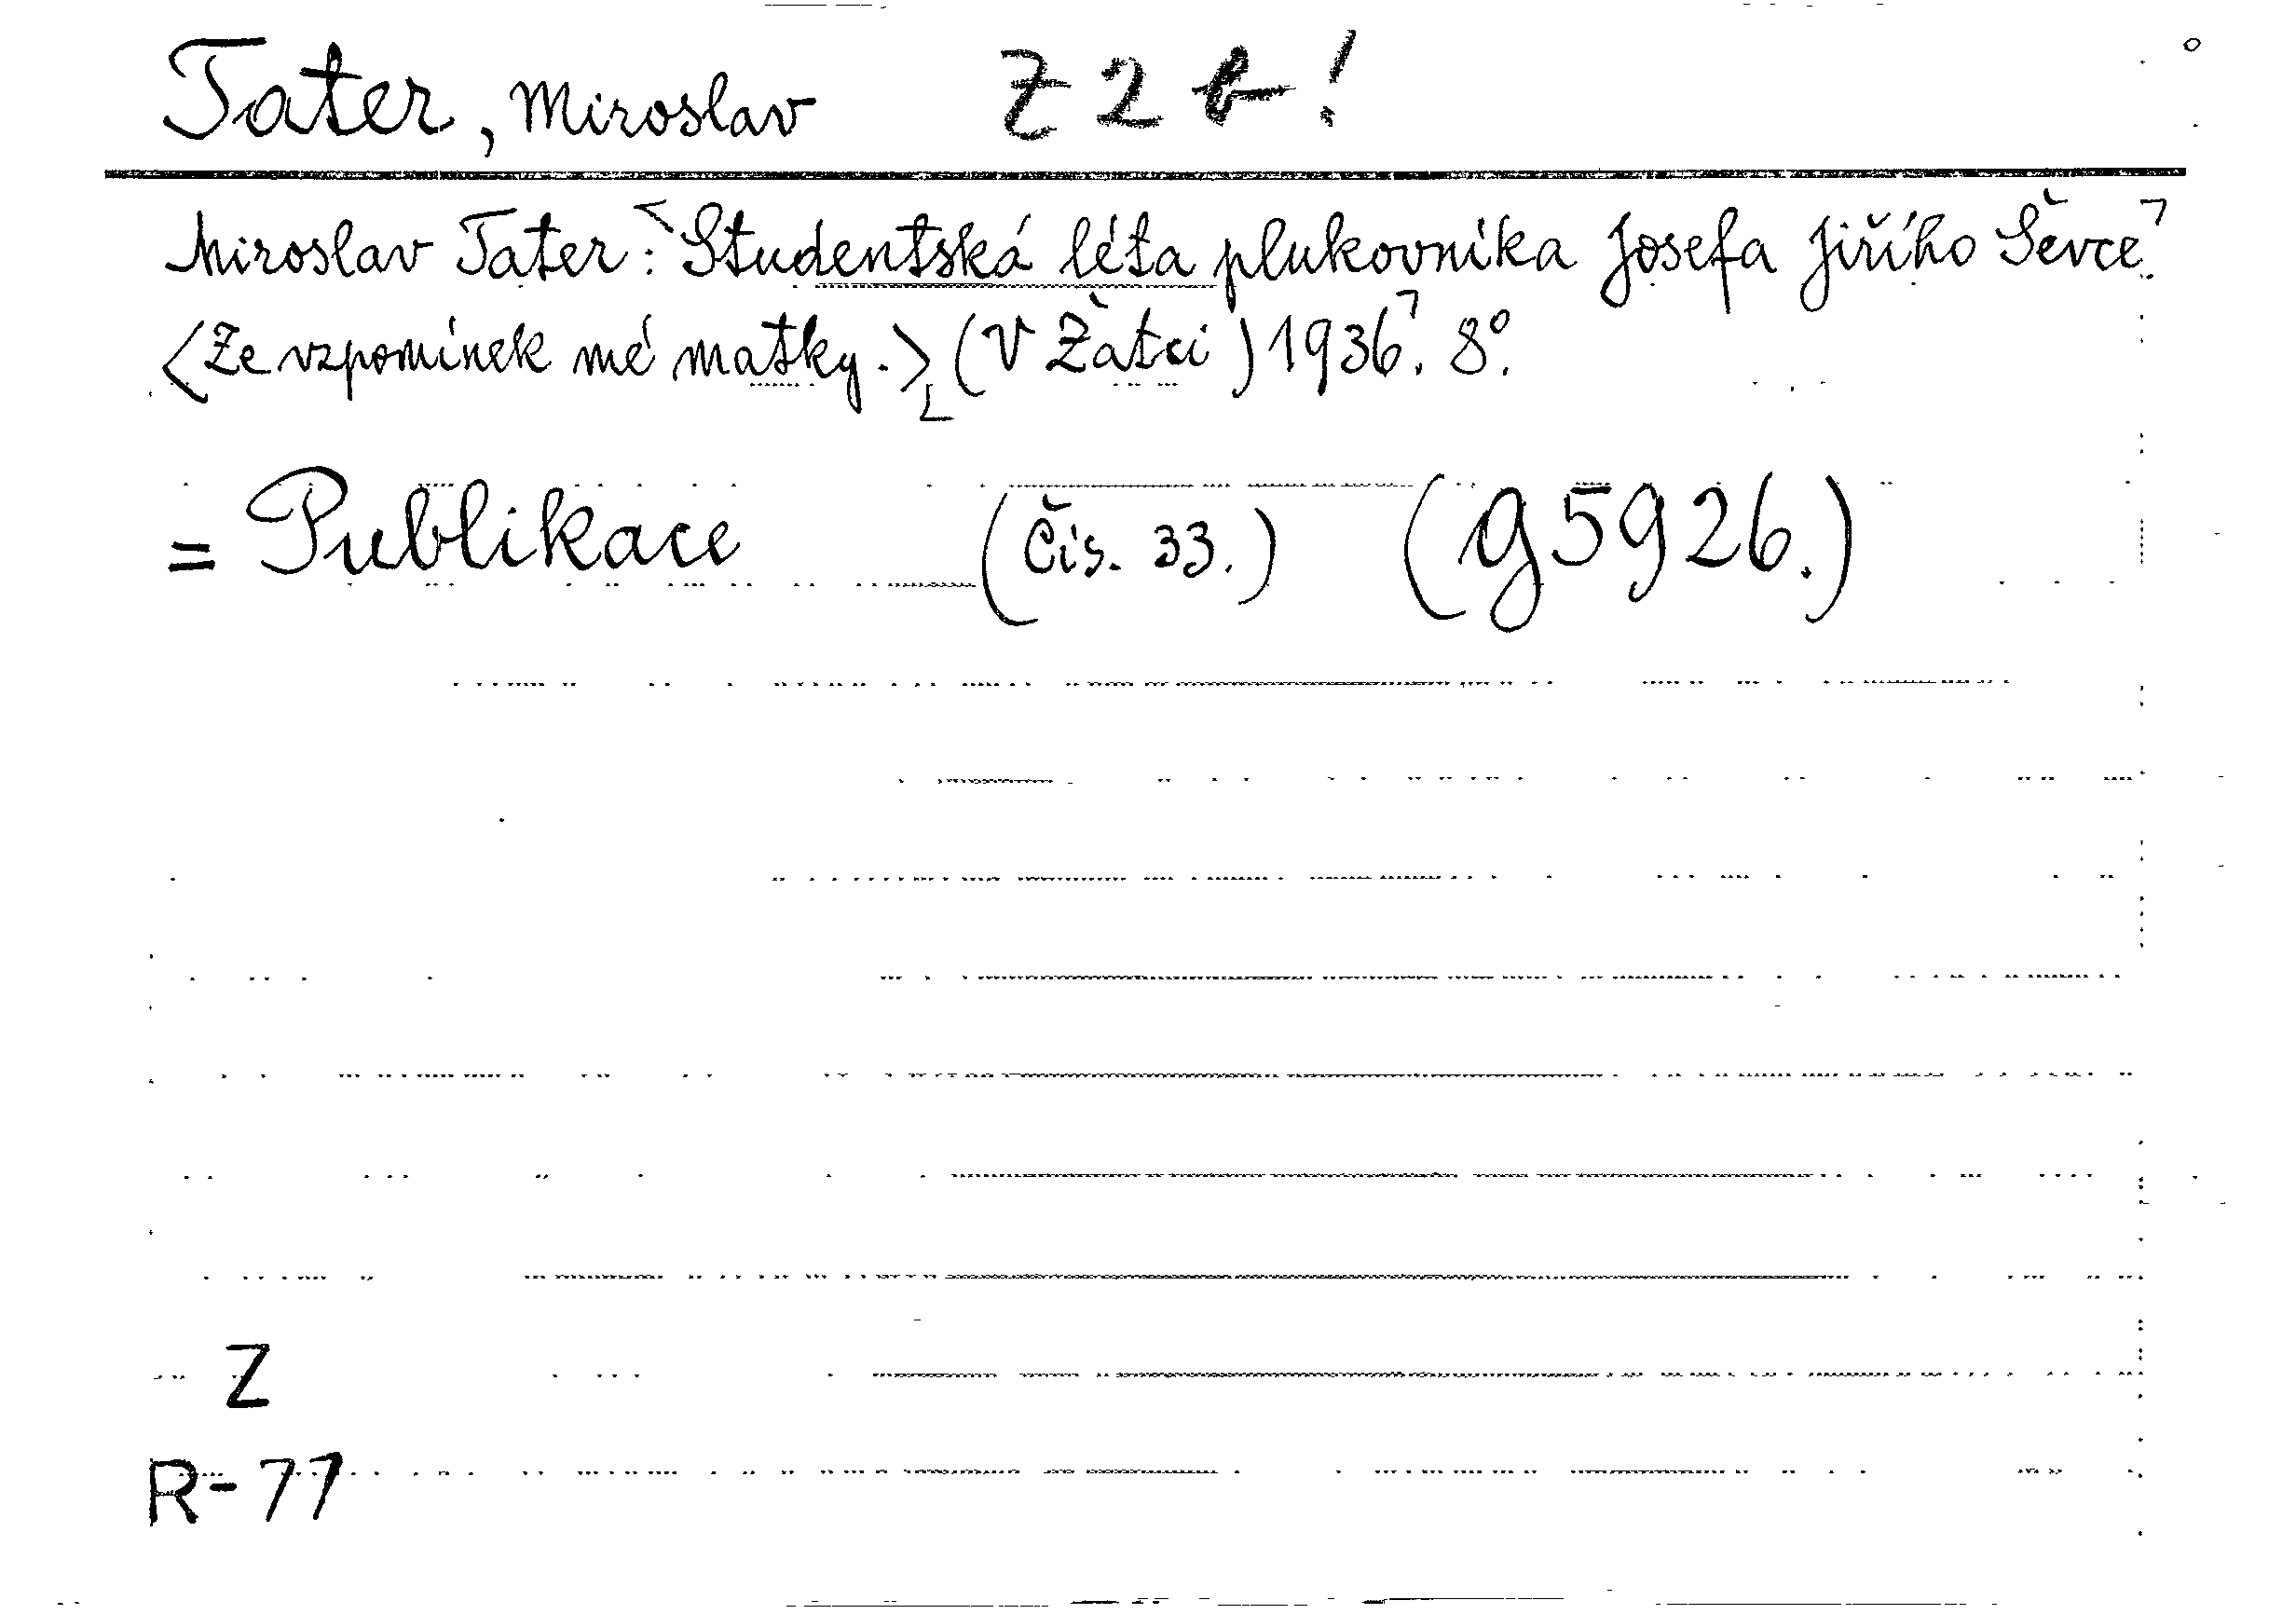 Tater, Miroslav Z 2 b !
Miroslav Tater: Studentská léta plukovníka Josefa Jiřího Ševce.
<Ze vzpomínek mé matky.> (V Žatci) 1936. 8°.
= Publikace (Čís. 33.) (g 5926.)
Z
R-77